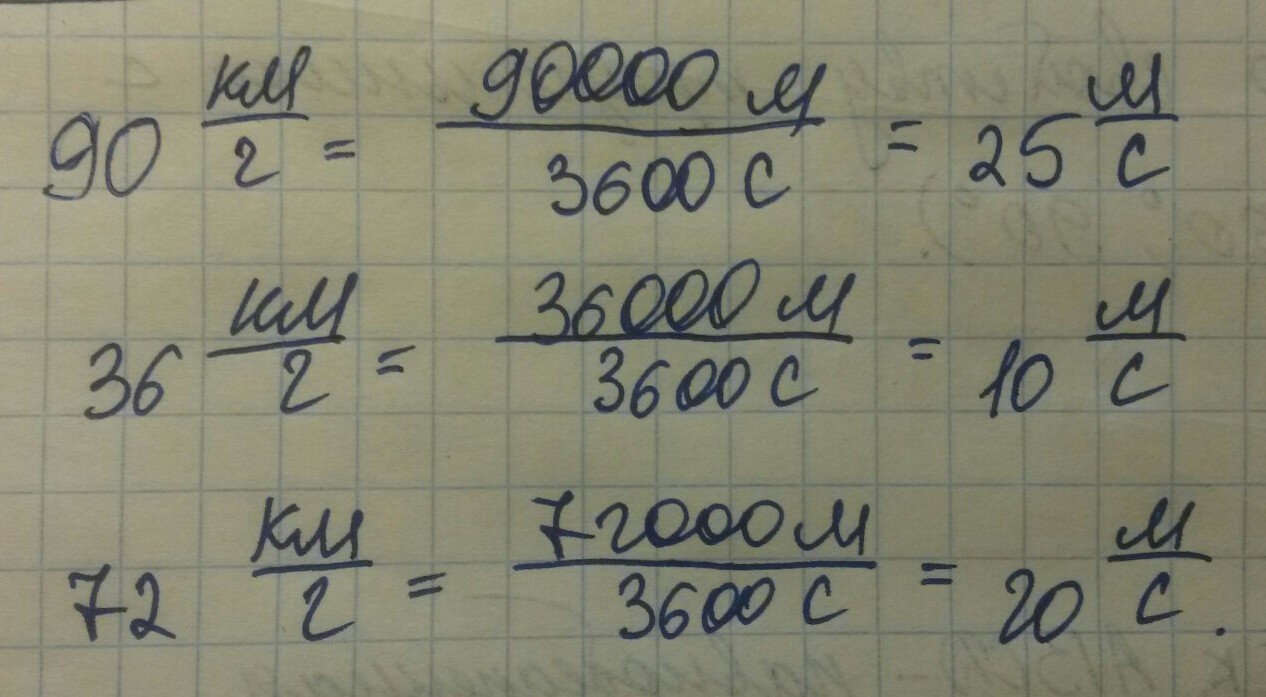 90 км/г = 90000 м/3600 с = 25 м/с
36 км/г = 36000 м/3600 с = 10 м/с
72 км/г = 72000 м/3600 с = 20 м/с.